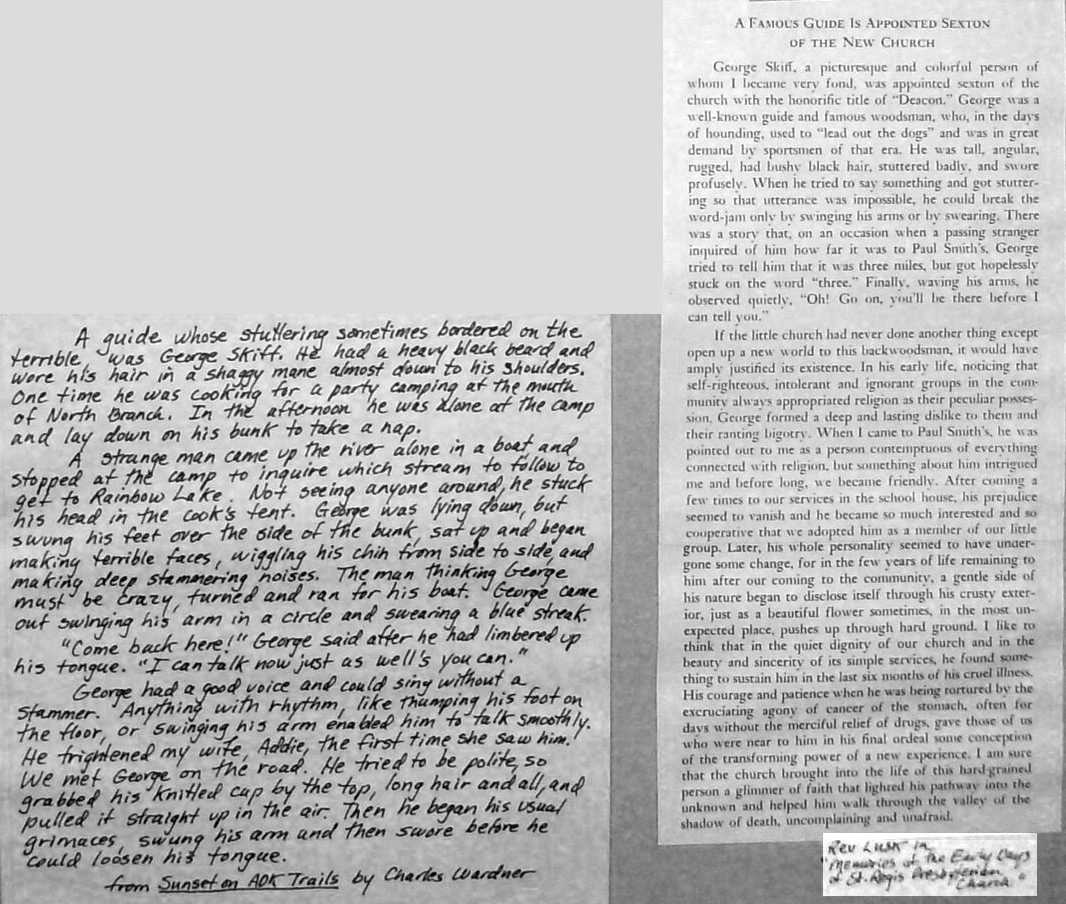 A guide whose stuttering sometimes bordered on the
terrible was George Skiff. He had a heavy black beard and
wore his hair in a shaggy mane almost down to his shoulders.
One time he was cooking for a party camping at the mouth
of North Branch. In the afternoon he was alone at the camp
and lay down on his bunk to take a nap.
A strange man came up the river alone in a boat and
stopped at the camp to inquire which stream to follow to
get to Rainbow Lake. Not seeing anyone around, he stuck
his head in the cook's tent. George was lying down, but
swung his feet over the side of the bunk, sat up and began
making terrible faces, wiggling his chin from side to side, and
making deep stammering noises. The man thinking George
must be crazy, turned and ran for his boat. George came
out swinging his arm in a circle and swearing a blue streak.
"Come back here!" George said after he had limbered up
his tongue. "I can talk now just as well's you can."
George had a good voice and could sing without a
stammer. Anything with rhythm, like thumping his foot on
the floor, or swinging his arm enabled him to talk smoothly.
He frightened my wife, Addie, the first time she saw him.
We met George on the road. He tried to be polite, so
grabbed his knitted cap by the top, long hair and all, and
pulled it straight up in the air. Then he began his usual
grimaces, swung his arm and then swore before he
could loosen his tongue.
from Sunset on ADK Trails by Charles Wardner
A Famous Guide Is Appointed Sexton
of the New Church
George Skiff, a picturesque and colorful person of
whom I became very fond, was appointed sexton of the
church with the honorific title of "Deacon." George was a
well-known guide and famous woodsman, who, in the days
of hounding, used to "lead out the dogs" and was in great
demand by sportsmen of that era. He was tall, angular,
rugged, had bushy black hair, stuttered badly, and swore
profusely. When he tried to say something and got stutter-
ing so that utterance was impossible, he could break the
word-jam only by swinging his arms or by swearing. There
was a story that, on an occasion when a passing stranger
inquired of him how far it was to Paul Smith's, George
tried to tell him that it was three miles, but got hopelessly
stuck on the word "three." Finally, waving his arms, he
observed quietly, "Oh! Go on, you'll be there before I
can tell you."
If the little church had never done another thing except
open up a new world to this backwoodsman, it would have
amply justified its existence. In his early life, noticing that
self-righteous, intolerant and ignorant groups in the com-
munity always appropriated religion as their peculiar posses-
sion, George formed a deep and lasting dislike to them and
their ranting bigotry. When I came to Paul Smith's, he was
pointed out to me as a person contemptuous of everything
connected with religion, but something about him intrigued
me and before long, we became friendly. After coming a
few times to our services in the school house, his prejudice
seemed to vanish and he became so much interested and so
cooperative that we adopted him as a member of our little
group. Later, his whole personality seemed to have under-
gone some change, for in the few years of life remaining to
him after our coming to the community, a gentle side of
his nature began to disclose itself through his crusty exter-
ior, just as a beautiful flower sometimes, in the most un-
expected place, pushes up through hard ground. I like to
think that in the quiet dignity of our church and in the
beauty and sincerity of its simple services, he found some-
thing to sustain him in the last six months of his cruel illness.
His courage and patience when he was being tortured by the
excruciating agony of cancer of the stomach, often for
days without the merciful relief of drugs, gave those of us
who were near to him in his final ordeal some conception
of the transforming power of a new experience. I am sure
that the church brought into the life of this hard-grained
person a glimmer of faith that lighted his pathway into the
unknown and helped him walk through the valley of the
shadow of death, uncomplaining and unafraid.
Rev Lusk in
"Memories of the Early Days
of St. Regis Presbyterian
Church"